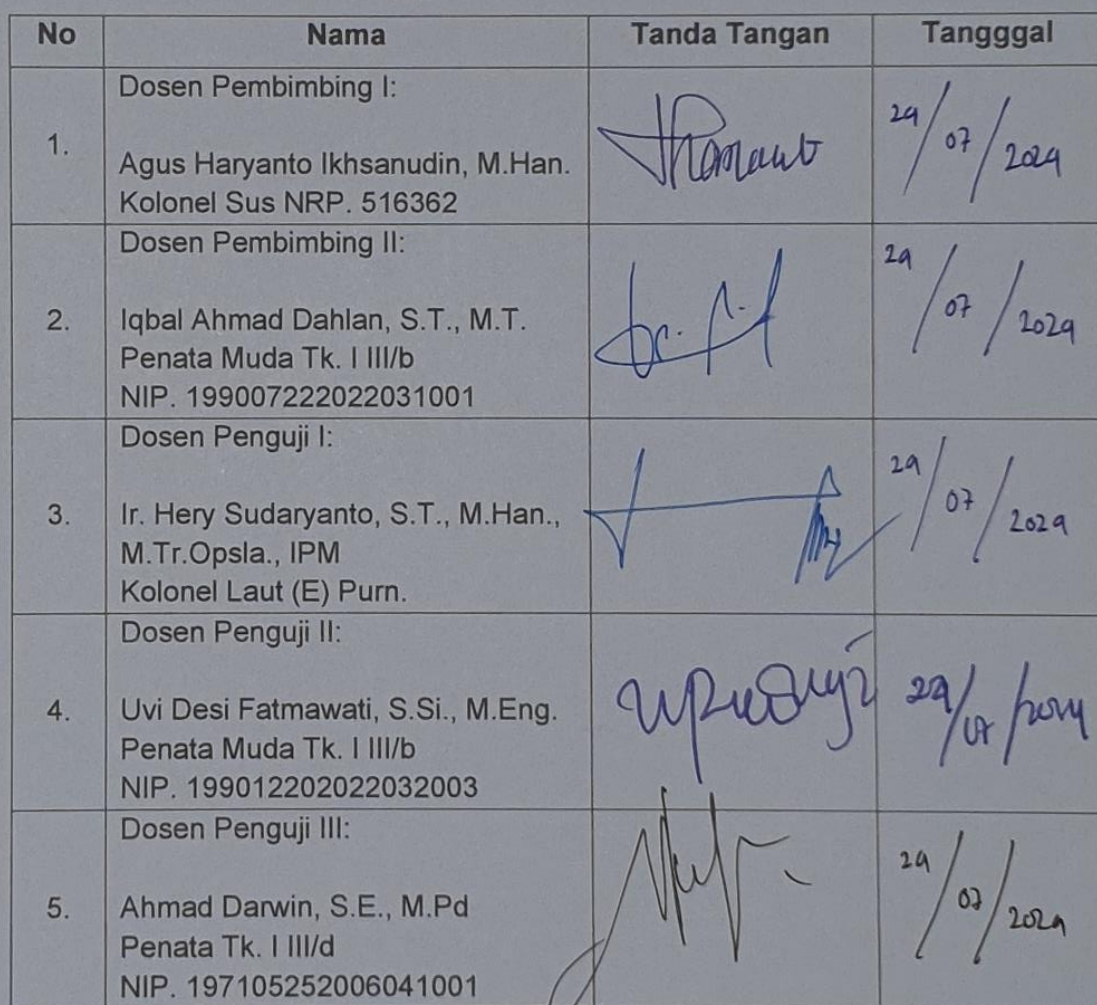 No Nama Tanda Tangan Tangggal
Dosen Pembimbing I:
1.
Agus Haryanto Ikhsanudin, M.Han.
Kolonel Sus NRP. 516362
29/07/2024
Dosen Pembimbing II:
2.
Iqbal Ahmad Dahlan, S.T., M.T.
Penata Muda Tk. I III/b
NIP. 199007222022031001
29/07/2024
Dosen Penguji I:
3.
Ir. Hery Sudaryanto, S.T., M.Han.,
M.Tr.Opsla., IPM
Kolonel Laut (E) Purn.
29/07/2024
Dosen Penguji II:
4.
Uvi Desi Fatmawati, S.Si., M.Eng.
Penata Muda Tk. I III/b
NIP. 199012202022032003
29/07/2024
Dosen Penguji III:
5.
Ahmad Darwin, S.E., M.Pd
Penata Tk. I III/d
NIP. 197105252006041001
29/07/2024